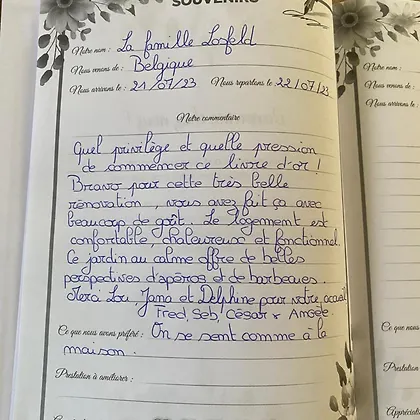 SOUVENIRS
Notre nom : La famille Losfeld
Nous venons de : Belgique
Nous arrivons le : 21/07/23 Nous repartons le : 22/07/23
Notre commentaire
Quel privilège et quelle pression
de commencer ce livre d'or !
Bravo pour cette très belle
rénovation, vous avez fait ça avec
beaucoup de goût. Le logement est
confortable, chaleureux et fonctionnel.
Ce jardin au calme offre de belles
perspectives d'apéros et de barbecues.
Merci Lou, Jama et Delphine pour votre accueil
Fred, Seb, César &
Ce que nous avons préféré : On se sent comme à la
maison.
Prestation à améliorer :
Notre nom :
Nous venons de :
Nous arrivons le :
Ce que nous
Prestation
Appréciati